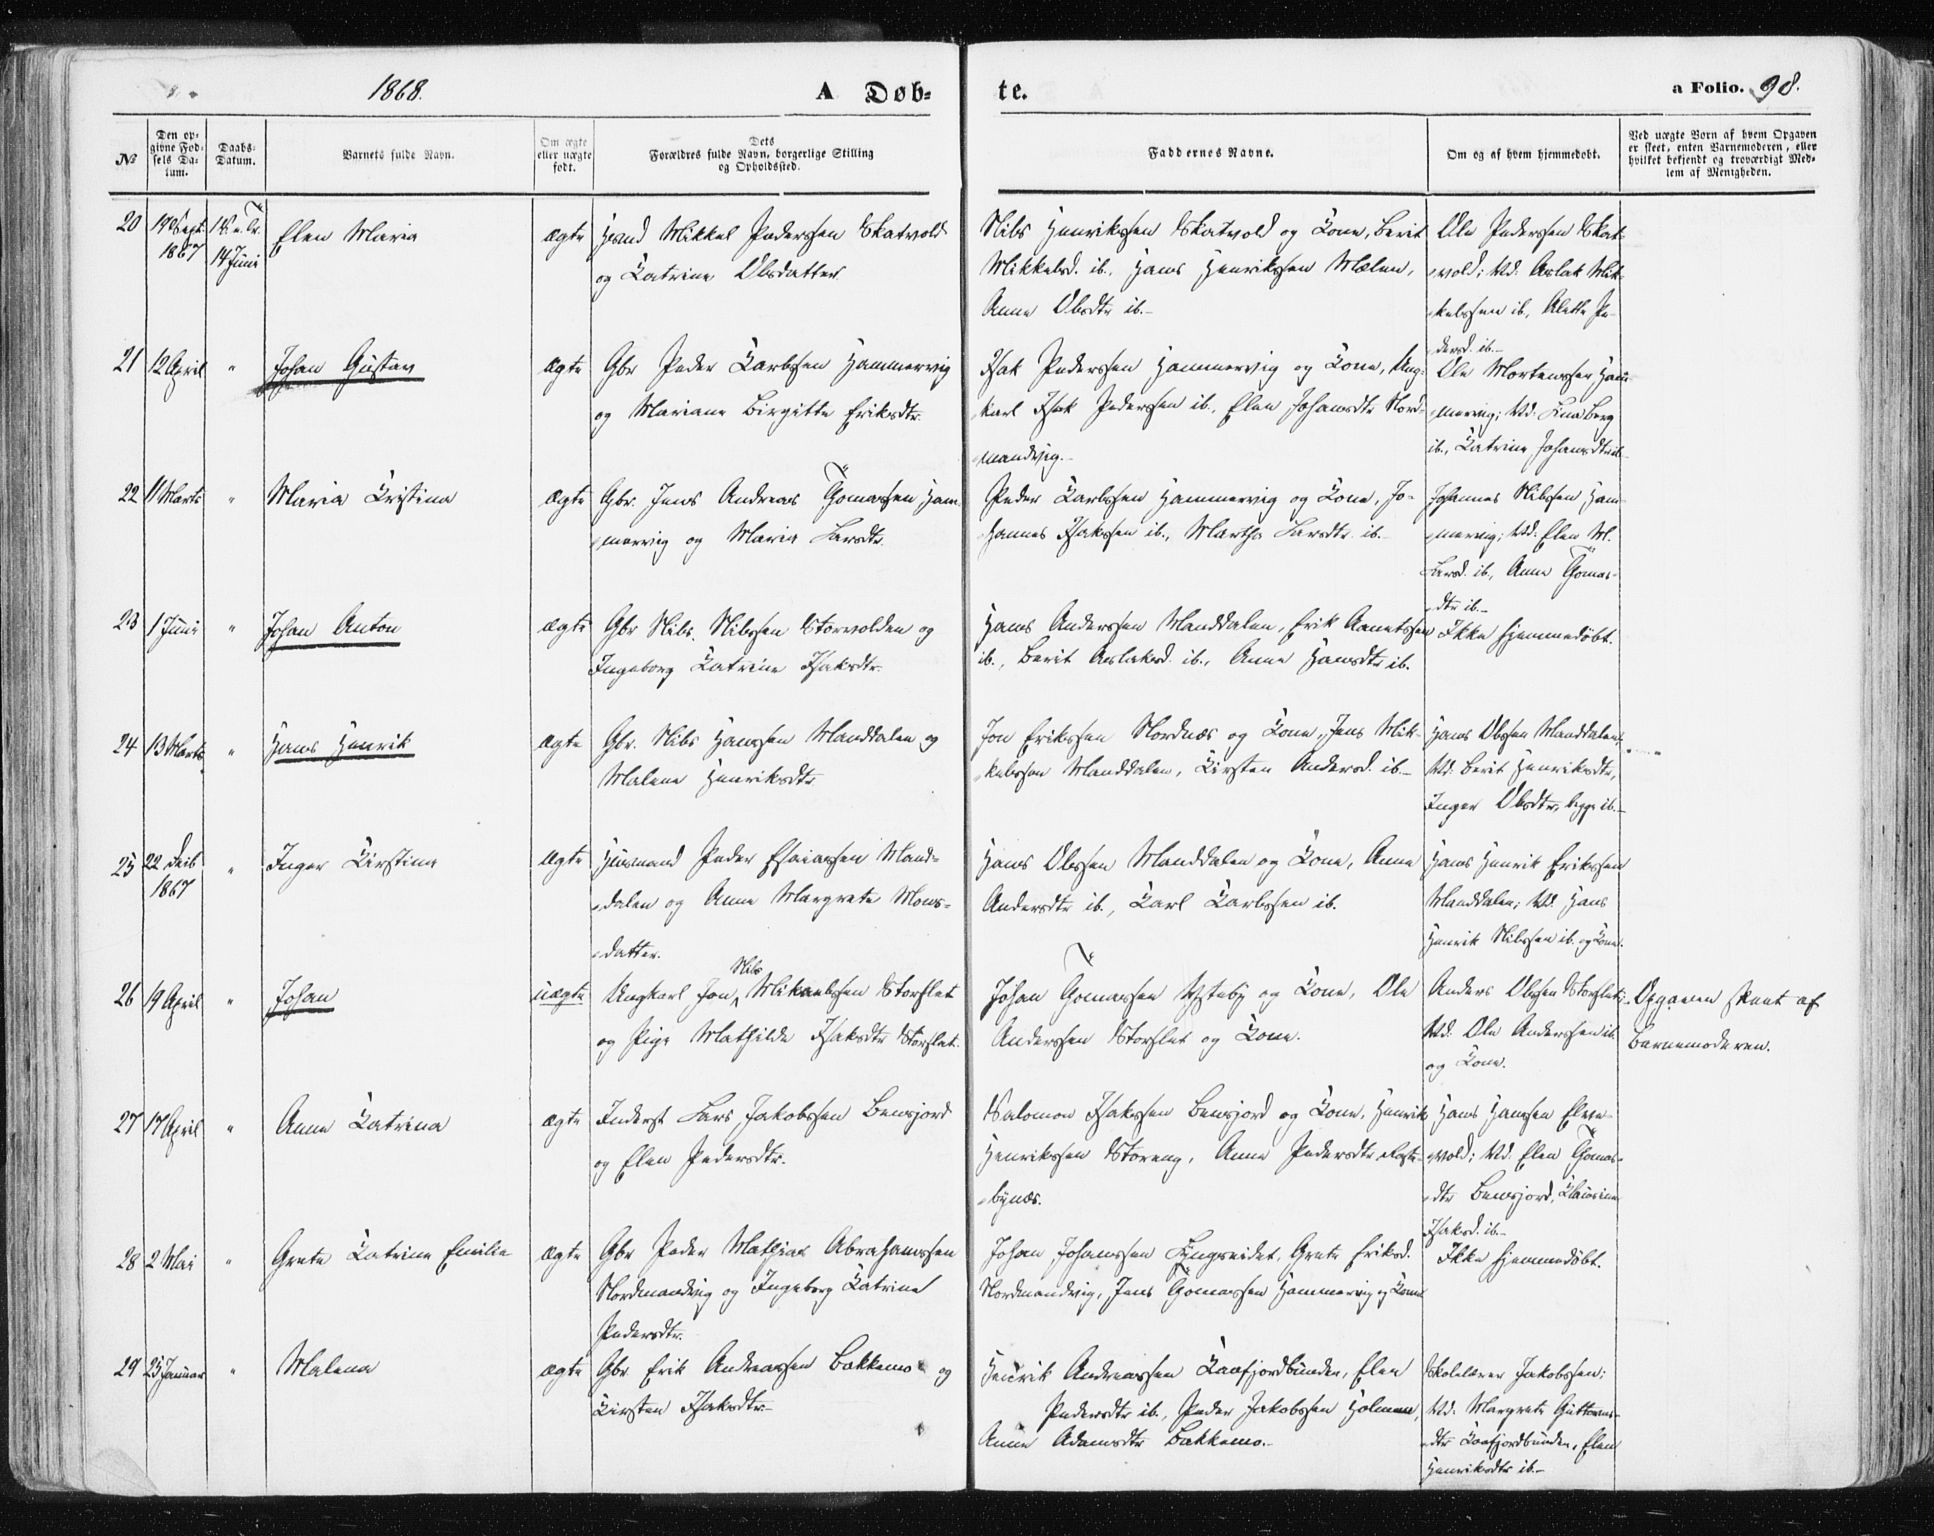 1868.
A Døb-
te.
a Folio. 98.
№
Den op-
givne Fød-
sels Da-
tum.
Daabs-
Datum.
Barnets fulde Navn.
Om ægte
eller uægte
født.
Dets
Forældres fulde Navn, borgerlige Stilling
og Opholdssted.
Faddernes Navne.
Om og af hvem hjemmedøbt.
Ved uægte Børn af hvem Opgaven
er skeet, enten Barnemoderen, eller
hvilket bekjendt og troværdigt Med-
lem af Menigheden.
20 19 Sept. 1867
14 Juni
Elen Maria
ægte
Hsmd Mikkel Pederssen Skatvold
og Katrine Olsdatter
Nils Henrikssen Skatvold og Kone, Berit
Mikkelsd. ib., Hans Henrikssen Mælen,
Anne Olsdtr ib.-
Ole Pederssen Skat-
vold; Vd. Aslak Mik-
kelssen ib, Alette Pe-
dersd. ib.-
21 12 April "
Johan Gustav
ægte
Gbr Peder Karlssen Hammervig
og Mariane Birgitte Eriksdtr.
Isak Pederssen Hammervig og Kone, Ung-
karl Isak Pederssen ib., Elen Johansdtr Nord-
mandvig.-
Ole Mortenssen Ham-
mervig; Vd. Berg
ib., Katrine Johansdtr ib.
22 11 Marts "
Maria Kristina
ægte
Gbr. Jens Andreas Thomassen Ham-
mervig og Maria Larsdtr.
Peder Karlssen Hammervig og Kone, Jo-
hannes Isakssen ib., Martha Larsdtr. ib.-
Johannes Nilssen Ham-
mervig; Vd. Elen M.
Larsd. ib., Anne Thomas-
dtr ib.-
23 1 Juni "
Johan Anton
ægte
Gbr Nils Nilssen Storvolden og
Ingeborg Katrine Isaksdtr.
Hans Anderssen Manddalen, Erik Aanetssen
ib., Berit Aslaksd. ib., Anne Hansdtr ib.
Ikke hjemmedøbt.
24 13 Marts "
Hans Henrik
ægte
Gbr. Nils Hanssen Manddalen og
Malene Henriksdtr.
Jon Erikssen Nordnæs og Kone, Jens Mik-
kelssen Manddalen, Kirsten Andersd. ib.-
Hans Olssen Manddalen;
Vd. Berit Henriksdtr,
Inger Olsdtr, begge ib.-
25 22 Decb 1867 "
Inger Kirstina
ægte
Huusmand Peder Esaiassen Mand-
dalen og Anne Margrete Mons-
datter.
Hans Olssen Manddalen og Kone, Anne
Andersdtr ib., Karl Karlssen ib.
Hans Henrik Erikssen
Manddalen; Vd. Hans
Henrik Nilssen ib. og Kone.
26 19 April "
Johan
uægte
Nils
Ungkarl Jon Mikaelssen Storslet
og Pige Mathilde Isaksdtr Storslet.
Johan Thomassen Ysteby og Kone, Ole
Anderssen Storslet og Kone.
Anders Olssen Storslet;
Vd. Ole Anderssen ib.
og Kone.
Opgaven skeet af
Barnemoderen.
27 17 April "
Anne Katrina
ægte
Inderst Lars Jakobssen Bensjord
og Elen Pedersdtr.
Salomon Isakssen Bensjord og Kone, Henrik
Henrikssen Storeng, Anne Pedersdtr
bynæs.
Hans Hanssen Elve-
vold; Vd. Elen Thomas-
dtr Bensjord, Klausine
Isaksd. ib.-
28 2 Mai "
Grete Katrine Emilie
ægte
Gbr Peder Mathias Abrahamssen
Nordmandvig og Ingeborg Katrine
Pedersdtr.
Johan Johanssen Lyngseidet, Grete Eriksd.
Nordmandvig, Jens Thomassen Hammervig og Kone
Ikke hjemmedøbt.
29 25 Januar "
Malena
ægte
Gbr Erik Andreassen Bakkemo og
Kirsten Isaksdtr.-
Henrik Andreassen Kaafjordbunden, Elen
Pedersdtr ib., Peder Jakobssen Holmen,
Anne Adamsdtr Bakkemo.-
Skolelærer Jakobssen;
Vd. Margrete Guttorms-
dtr Kaafjordbunden, Elen
Henriksdtr ib.-